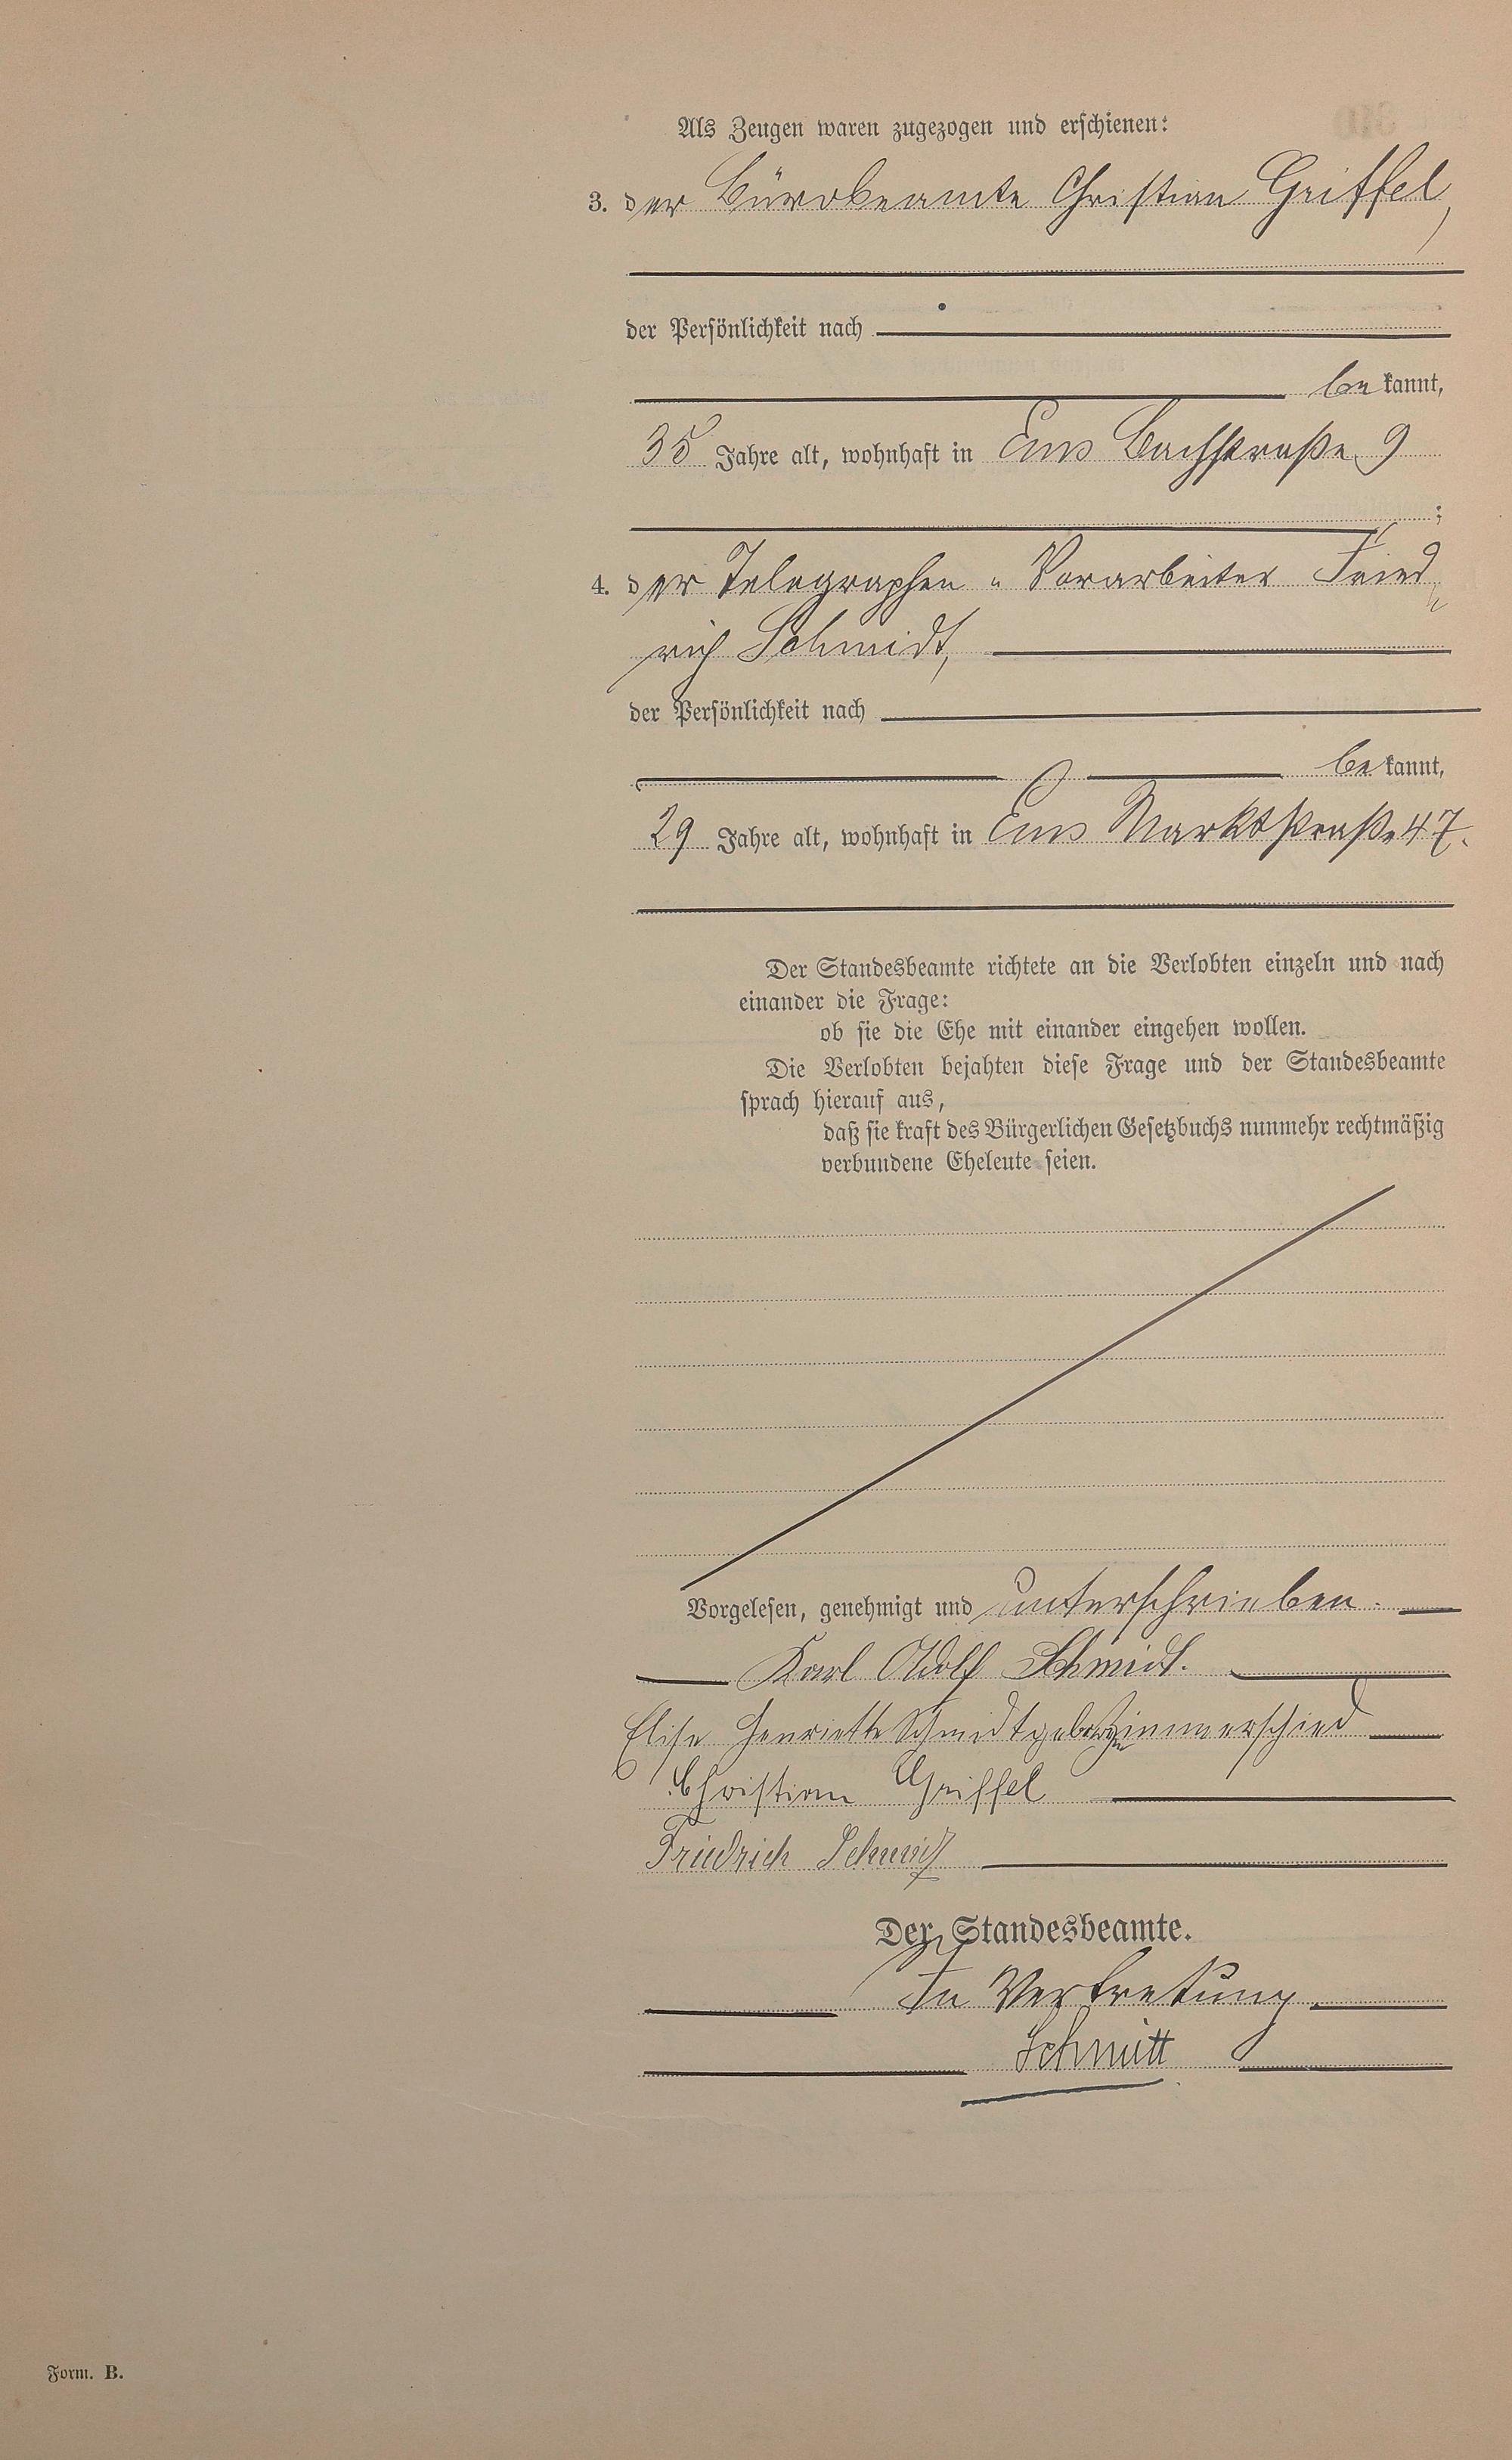 Als Zeugen waren zugezogen und erschienen:
3. der Bürobeamte Christian Griffel,
der Persönlichkeit nach
bekannt,
35 Jahre alt, wohnhaft in Ems Bachstraße 9
;
4. der Telegraphen-Vorarbeiter Fried-
rich Schmidt,
der Persönlichkeit nach
bekannt,
29 Jahre alt, wohnhaft in Ems Marktstraße 47.
Der Standesbeamte richtete an die Verlobten einzeln und nach
einander die Frage:
ob sie die Ehe mit einander eingehen wollen.
Die Verlobten bejahten diese Frage und der Standesbeamte
sprach hierauf aus,
daß sie kraft des Bürgerlichen Gesetzbuchs nunmehr rechtmäßig
verbundene Eheleute seien.
Vorgelesen, genehmigt und unterschrieben.
Karl Adolf Schmidt.
Elise Henriette Schmidt geborene Zimmerschied
Christian Griffel
Friedrich Schmidt
Der Standesbeamte.
In Vertretung
Schmitt
Form. B.